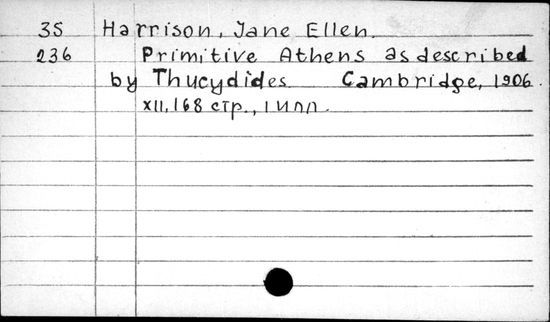 35 Harrison, Jane Ellen.
236 Primitive Athens as described
by Thucydides. Cambridge, 1906.
XII, 168 стр., 1 илл.